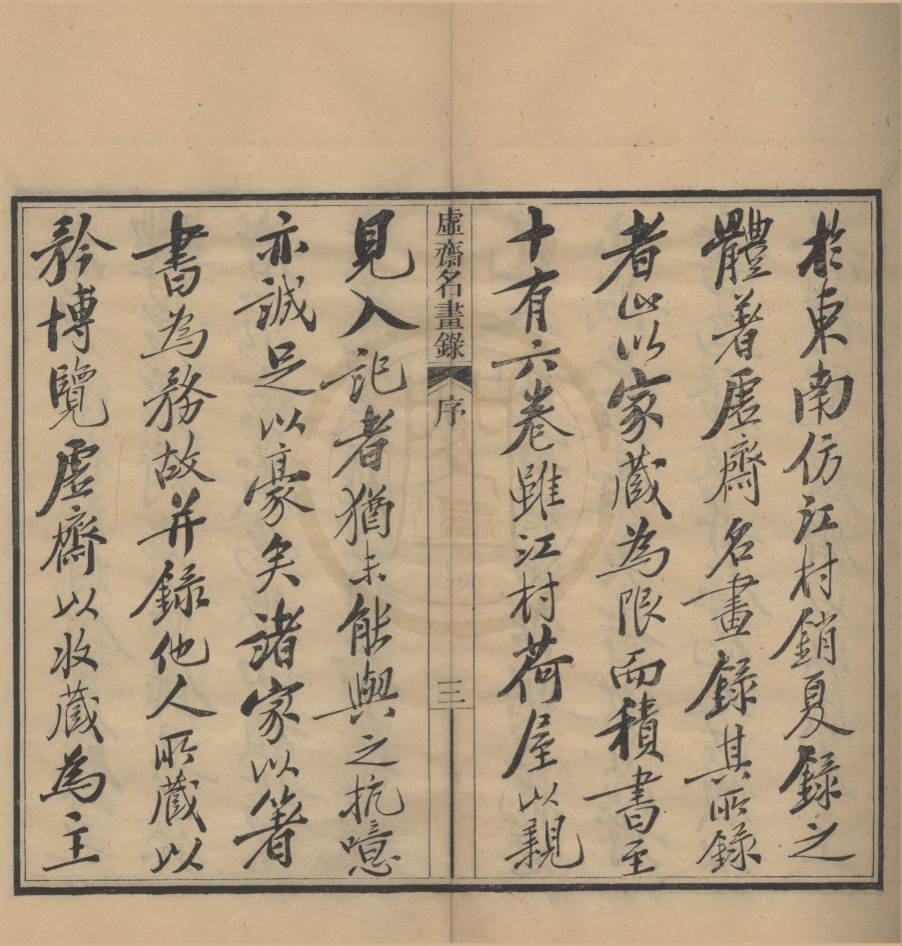 於東南仿江村銷夏錄之
體著虛齋名畫錄其所錄
者止以家蔵為限而積書至
十有六卷雖江村荷屋以親
虛齋名畫錄
序
三
見入記者猶未能與之抗噫
亦誠足以豪矣諸家以著
書為務故并録他人所蔵以
矜博覽虛齋以收蔵為主